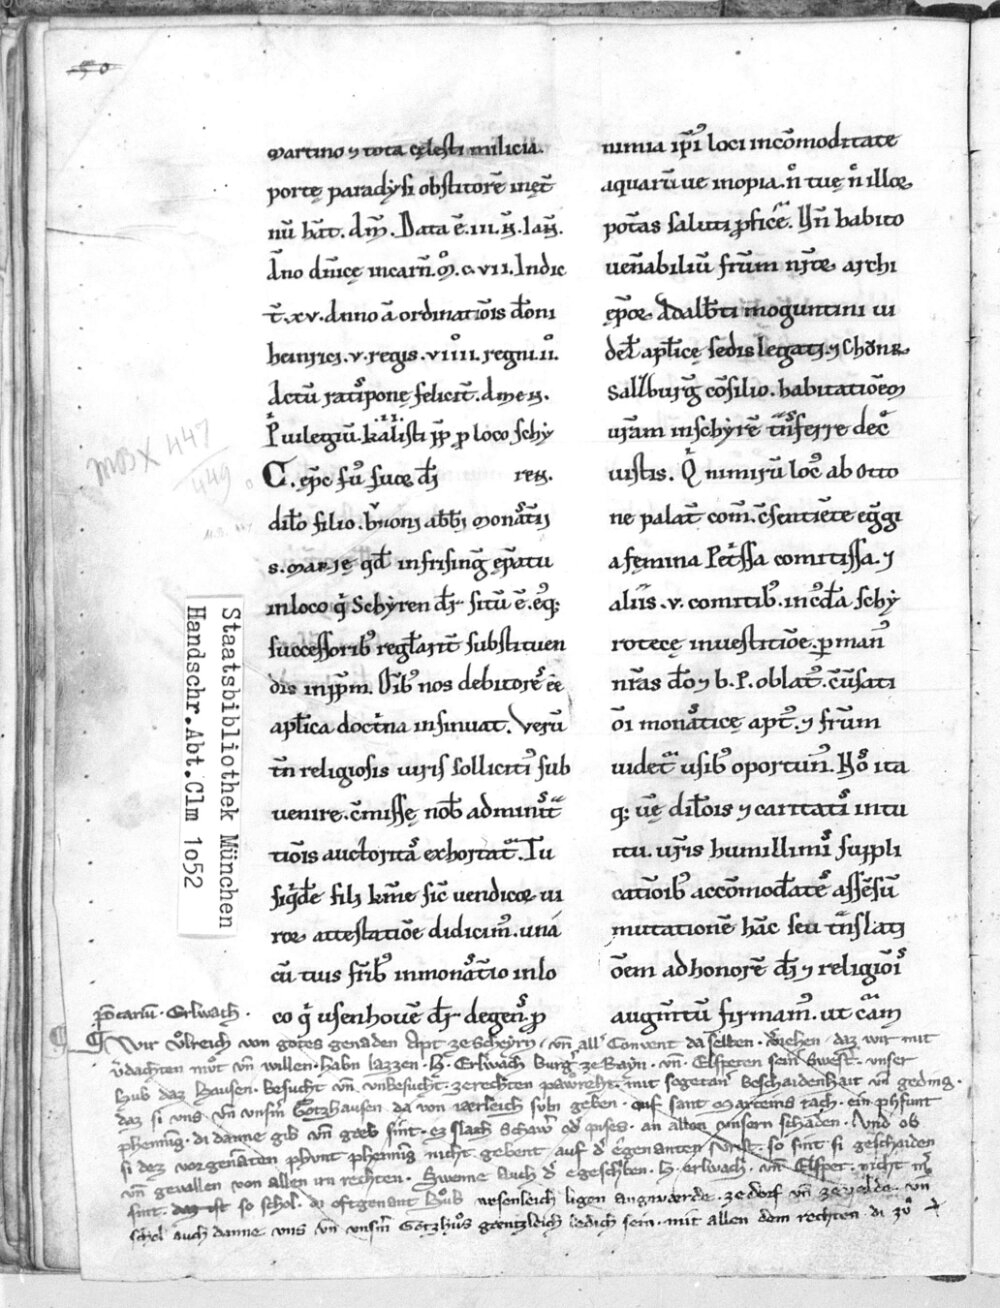 50
martino ⁊ tota cęlesti milicia.
portę paradysi obstitorē inęt̄
nū hāt. dm̄. Data ē. iii. k̄. Iak̄.
Āno dn̄icę incarn̄. m̊. c. vii. Indic
t̄. xv. Anno ā ordinatiōis dōni
heinrici. v. regis. viiii. regni. ii.
Actū ratīponę felicit̄. am̄en.
Puilegiū. kalisti pp̄ p loco schy
C. ep̄c ſuꝰ suoꝝ dī ren.
dil̄o filio. bruoni abb̄i monāt̄ij
s. marię qd̄ in frisinḡ ep̄atu
in loco q̇ Schyren dr̄ sitū ē. eꝰq;
successorib; reglarit̄ substituen
dis inpp̄m. Oīb; nos debitorēs ēe
apl̄ica doctrina insinuat. Verū
tn̄ religiosis uiris sollicitiꝰ sub
uenire. c̄missę nob̄ administ̄
tiōis auctoritas exhortat̄. Tu
siq̇dē fili kme sic̄ ueridicoꝝ ui
roꝝ attestatiōe didicimꝰ. una
cū tuis fr̄ib; in monat̄io in lo
co q̇ usenhouē dr̄ degens. p
nimia ip̄iꝰ loci incōmoditate
aquarū ue inopia. n̄ tuę n̄ illoꝝ
potas saluti pficē. Vn̄ habito
uen̄abiliū frūm nr̄oꝝ archi
ęp̄oꝝ Adalb̄ti moguntini ui
del̄ apl̄icę sedis legati. ⁊ Chōnr.
Salzburḡ cōsilio. habitatiōem
ur̄am in schyrē tn̄sferre decꝰ
uistis. Q nimirū locꝰ ab Otto
ne palat̄ com̄. c̄sentiēte egḡi
a femina Petrissa comitissa. ⁊
aliis. v. comitib;. in c̄da schy
rotecę inuestitiōe. p manꝰ
nr̄as dō ⁊ b. P. oblatꝰ. c̄ūsati
ōi monasticę aptꝰ. ⁊ frūm
uidet̄ usib; oportunꝰ. Nos ita
q; ur̄ę dil̄ois ⁊ caritatis intu
itu. ur̄is humillimis suppli
catiōib; accōmodātes assēsū
mutationē hāc seu tn̄slati
ōem ad honorē dī ⁊ religiōis
augm̄tū firmamꝰ. ut cām
p̄cariū. Erlwach.
¶ Wir Vͦlreich von gotes genaden Apt ze Scheyrn / vn̄ all Convent da selben. veriehen daz wir mit
verdachten mvͦt vn̄ willen. habn lazzen. H. Erlwach burḡ ze Rayn. vn̄. Elspeten sein swest̄. vnser
Hub daz Hausen. besucht vn̄ vnbesucht. ze rechten pawreht. mit sogetan̄ beschaidenhait vn̄ geding.
daz si vns vn̄ vnsm̄ Gotzhausen da von ierleich suln geben. auf sant Marteins tach. ein phfunt
phenning. di danne gib vn̄ geeb sint. ez slach schawr od̄ pises. an allen vnsern schaden. Vnd ob
si dez vorgenāten phunt phennig nicht gebent auf d̄ egenanten vrist. so sint si geschaiden
vn̄ gevallen von allen irn rechten. Swenne auch d̄ egeschben. H. erlwach. vn̄ Elspet. nicht m̄
sint. so schol. di oftgenant Hub wesenleich ligen angwerde. ze dorf vn̄ ze velde. vn̄
schol auch danne vns vn̄ vnsm̄ Gotzhus gentzleich ledich sein. mit allen dem rechten. di zu
MB X 447
449
Staatsbibliothek München
Handschr.Abt.Clm 1052